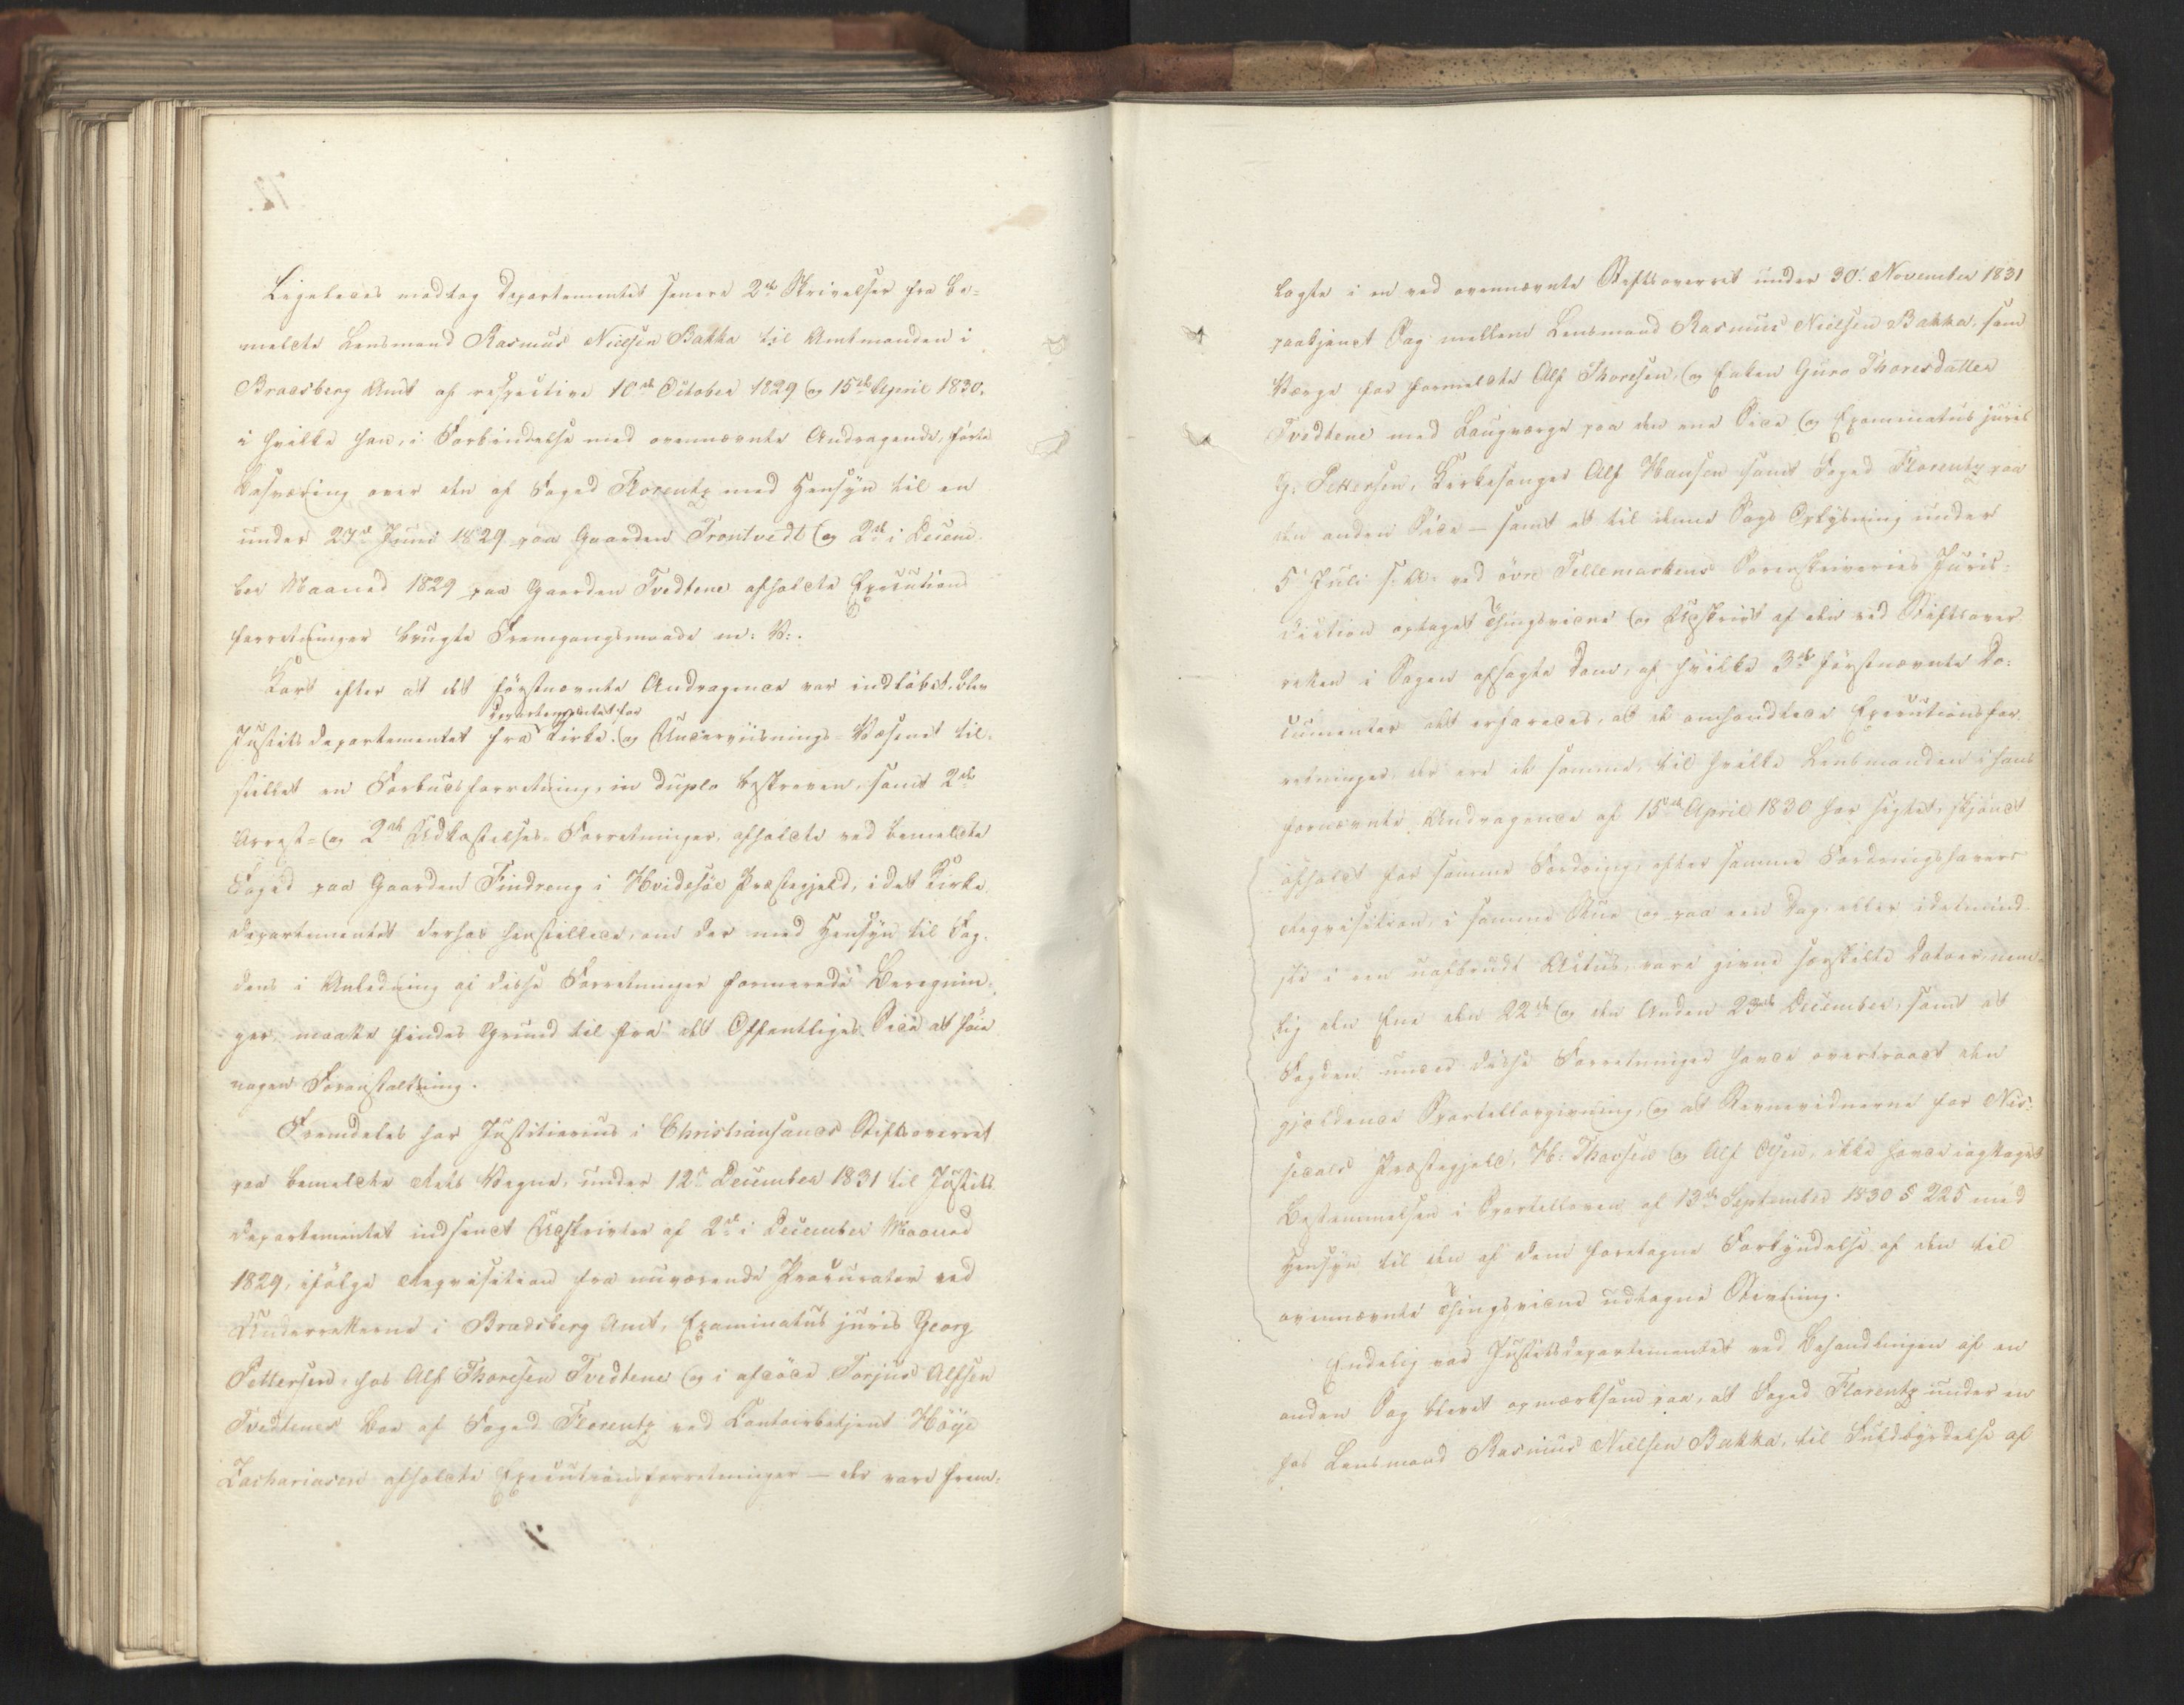 Ligeledes modtog Departementet senere 2de Skrivelser fra be-
meldte Lensmand Rasmus Nielsen Bakka til Amtmanden i
Bradsberg Amt af respective 10de October 1829 og 15de April 1830,
i hvilke han, i Forbindelse med ovennævnte Andragende, førte
Besværing over den af Foged Florentz med Hensyn til en
under 27de Juni 1829 paa Gaarden Trontvedt og 2de i Decem-
ber Maaned 1829 paa Gaarden Tvedtene afholdte Executions
forretninger brugte Fremgangsmaade m: V:.
Kort efter at det førstnævnte Andragende var indløbet, blev
Departementet for
Justitsdepartementet fra Kirke- og Underviisnings-Væsenet til-
stillet en Forbudsforretning, in duplo beskreven, samt 2de
Arrest- og 2de Udkastelses-Forretninger, afholdte ved bemeldte
Foged paa Gaarden Findreng i Hvidesøe Præstegjeld, idet Kirke-
departementet derhos henstillede, om der med Hensyn til Fog-
dens i Anledning af disse Forretninger formerede Beregnin-
ger, maatte findes Grund til fra det Offentliges Side at føie
nogen Foranstaltning.
Fremdeles har Justitiarius i Christiansands Stiftsoverret
paa bemeldte Rets Vegne, under 12te December 1831 til Justits
departementet indsendt Udskrivter af 2de i December Maaned
1829, ifølge Reqvisition fra nuværende Procurator ved
Underretterne i Bradsberg Amt, Examinatus juris Georg
Pettersen, hos Alf Thoresen Tvedtene og i afdøde Torjus Alfsen
Tvedtenes Boe af Foged Florentz ved Contoirbetjent Höye
Zachariasen afholdte Executionsforretninger – der vare frem-
lagte i en ved ovennævnte Stiftsoverret under 30. November 1831
paakjendt Sag mellem Lensmand Rasmus Nielsen Bakka, som
Værge for formeldte Alf Thoresen, og Enken Guro Thoresdatter
Tvedtene med Laugværge paa den ene Side og Examinatus juris
G. Pettersen, Kirkesanger Alf Hansen samt Foged Florentz paa
den anden Side – samt et til denne Sags Oplysning under
5te Juli s: A: ved øvre Tellemarkens Sorenskriveries Juris-
diction optaget Thingsvidne og Udskrivt af den ved Stiftsover-
retten i Sagen afsagte Dom, af hvilke 3de førstnævnte Do-
cumenter det erfaredes, at de omhandlede Executionsfor-
retninger, der ere de samme, til hvilke Lensmanden i hans
fornævnte Andragende af 15de April 1830 har sigtet, skjøndt
afholdt for samme Fordring, efter samme Fordringshavers
Reqvisition, i samme Stue og paa een Dag, eller idetmind-
ste i een uafbrudt Actus, vare givne særskilte Datoer, nem-
lig den Ene den 22de og den Anden 23de December, samt at
Fogden under disse Forretninger havde overtraadt den
gjældende Sportellovgivning, og at Stevnevidnerne for Nis-
sedals Præstegjeld, H: Thovsen og Alf Olsen, ikke havde iagttaget
Bestemmelsen i Sportelloven af 13de September 1830 § 225 med
Hensyn til den af dem foretagne Forkyndelse af den til
ovennævnte Thingsvidne udtagne Stevning.
Endelig var Justitsdepartementet ved Behandlingen af en
anden Sag blevet opmærksom paa, at Foged Florentz under en
hos Lensmand Rasmus Nielsen Bakka, til Fuldbyrdelse af